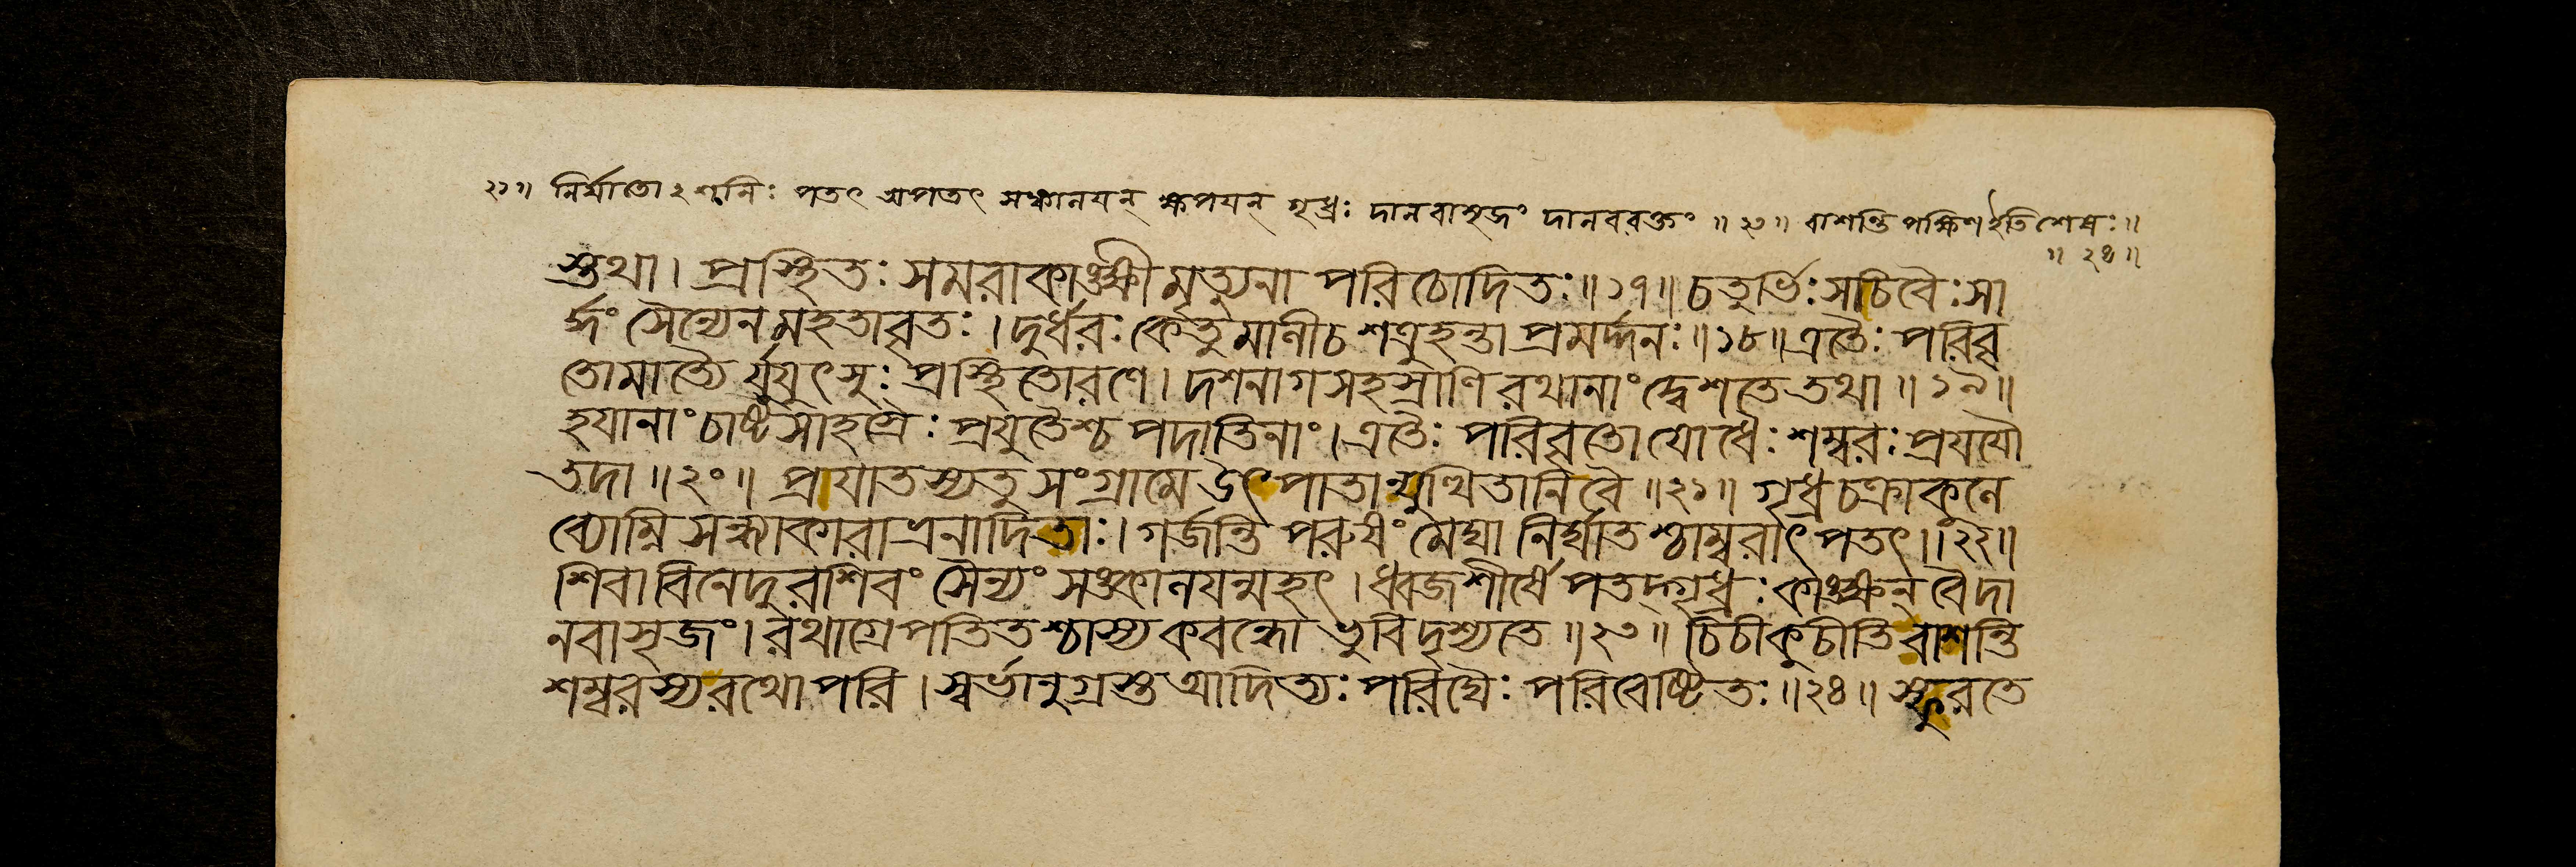 ২১॥ নির্ঘাতো২শনিঃ পতৎ অপতৎ সঙ্কানযন্ ক্ষপযন্ গৃধ্রঃ দানবাসৃজং দানবরক্তং ॥ ২৩ ॥ বাশন্তি পক্ষিণ ইতি শেষঃ ॥
॥ ২৪ ॥
স্তথা। প্রস্থিতঃ সমরাকাঙ্ক্ষী মৃত্যুনা পরিচোদিতঃ ॥ ১৭ ॥ চতুর্ভিঃ সচিবৈঃ সা
র্দ্ধং সৈন্যেন মহতাবৃতঃ । দুর্ধরঃ কেতুমানীচ শত্রুহন্তা প্রমর্দ্দনঃ ॥ ১৮ ॥ এতৈঃ পরিবৃ
তোমাত্যৈ র্যুযুৎসুঃ প্রস্থিতোরণে । দশনাগসহস্রাণি রথানাং দ্বেশতে তথা ॥ ১৯ ॥
হযানাং চাষ্টসাহস্রৈঃ প্রযুতৈশ্চ পদাতিনাং । এতৈঃ পরিবৃতো যোধৈঃ শম্বরঃ প্রযযৌ
তদা ॥ ২০ ॥ প্রাযাতস্যতু সংগ্রামে উৎপাতান্যুত্থিতানি বৈ ॥ ২১ ॥ গৃধ্রচক্রাকুলে
ব্যোম্নি সন্ধ্যাকারাভ্রনাদিতাঃ । গর্জন্তি পরুষং মেঘা নির্ঘাতশ্চাম্বরাৎ পতৎ ॥ ২২ ॥
শিবা বিনেদুরশিবং সৈন্যং সঙ্কানযন্মহৎ । ধ্বজশীর্ষে পতদ্গৃধ্রঃ কাঙ্ক্ষন্ বৈ দা
নবাসৃজং । রথাগ্রে পতিতশ্চাস্য কবন্ধো ভুবি দৃশ্যতে ॥ ২৩ ॥ চিচীকুচীতি বাশন্তি
শম্বরস্য রথোপরি । স্বর্ভানুগ্রস্ত আদিত্যঃ পরিঘৈঃ পরিবেষ্টিতঃ ॥ ২৪ ॥ স্ফুরতে